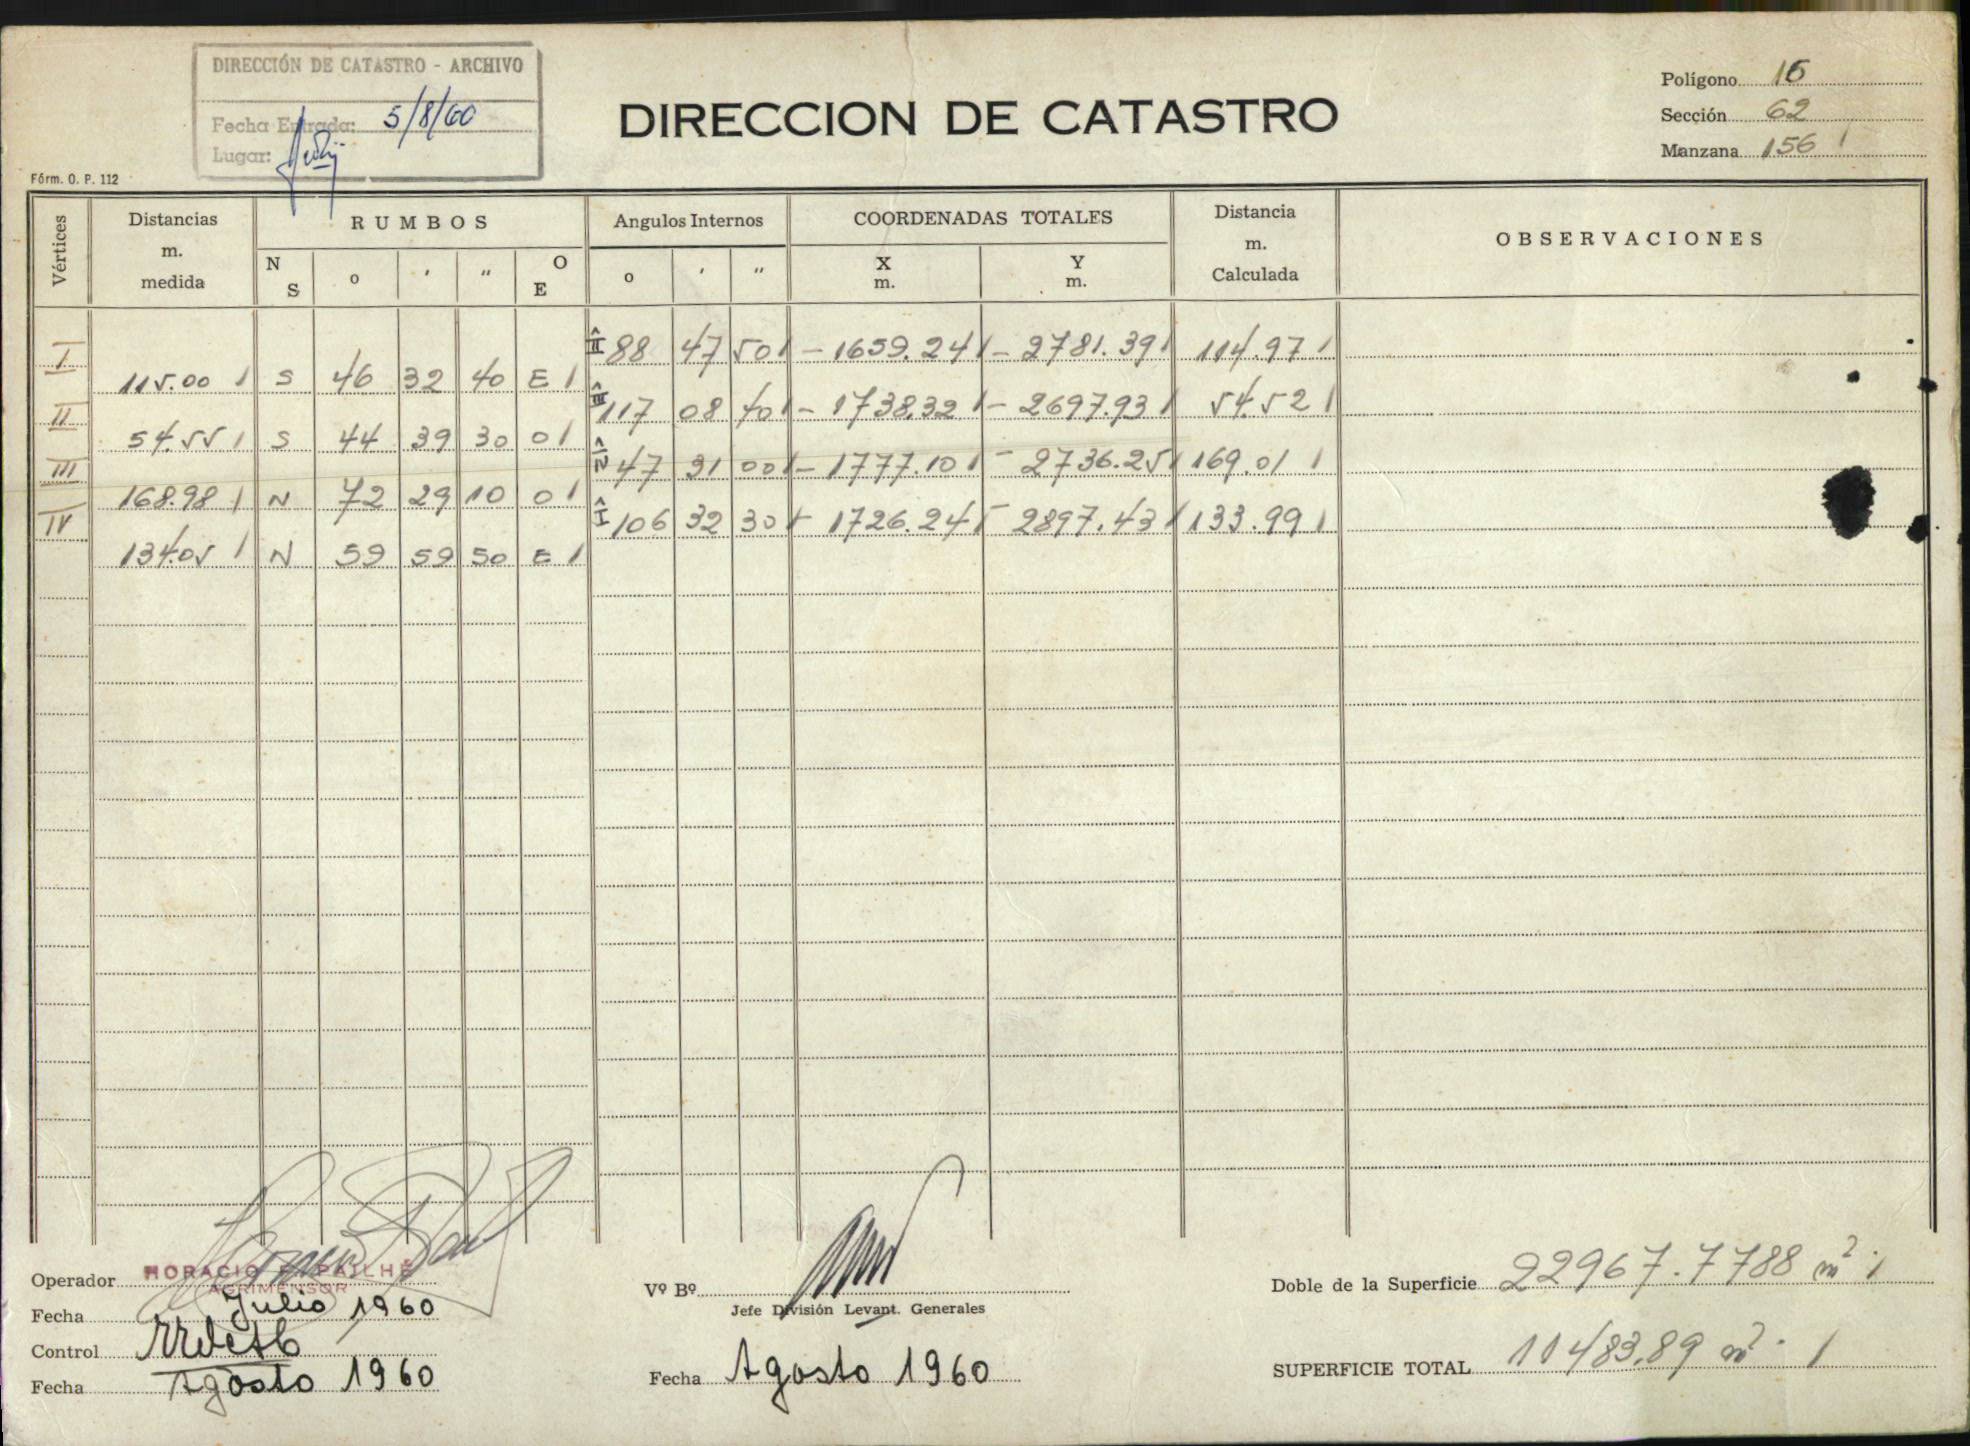 DIRECCIÓN DE CATASTRO - ARCHIVO
Fecha Entrada: 5/8/60
Lugar:
DIRECCION DE CATASTRO
Polígono
Sección 62
Manzana 156
Fórm. O. P. 112
Vértices
Distancias m. medida
RUMBOS
N S o ' " O E
Angulos Internos
o ' "
COORDENADAS TOTALES
X m. Y m.
Distancia m. Calculada
OBSERVACIONES
I II 88 47 50 - 1659.24 - 2781.39 114.97
115.00 S 46 32 40 E
II III 117 08 40 - 1738.32 - 2697.93 54.52
54.55 S 44 39 30 O
III IV 47 31 00 - 1777.10 - 2736.25 169.01
168.98 N 72 29 10 O
IV I 106 32 30 - 1726.24 - 2897.43 133.99
134.05 N 59 59 50 E
Operador HORACIO PAILHÉ
AGRIMENSOR
Fecha Julio 1960
Control
Fecha Agosto 1960
Vº Bº
Jefe División Levant. Generales
Fecha Agosto 1960
Doble de la Superficie 22967.7788 m²
SUPERFICIE TOTAL 11483.89 m²